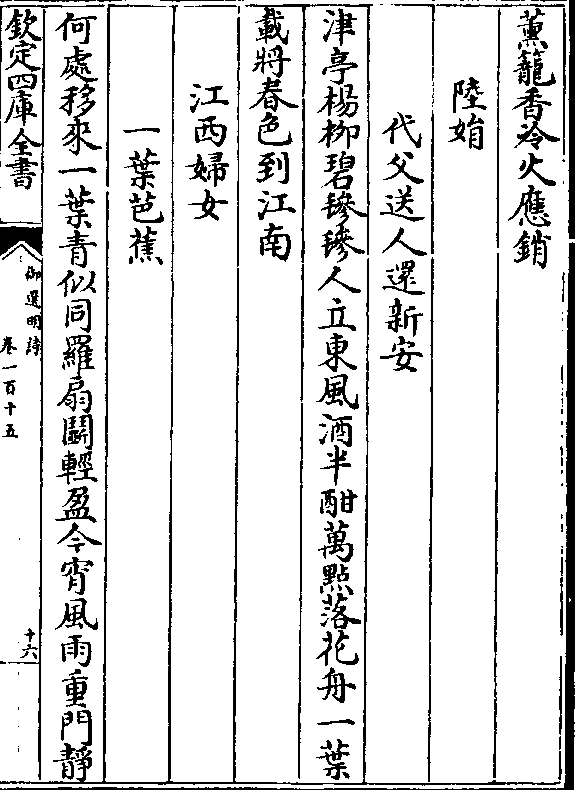 薰籠香冷火應銷
陸娟
代父送人還新安
津亭楊柳碧毿毿人立東風酒半酣萬點落花舟一葉
載將春色到江南
江西婦女
一葉芭蕉
何處移來一葉青似同羅扇鬭輕盈今宵風雨重門靜
欽定四庫全書
御選明詩
卷一百十五
十六